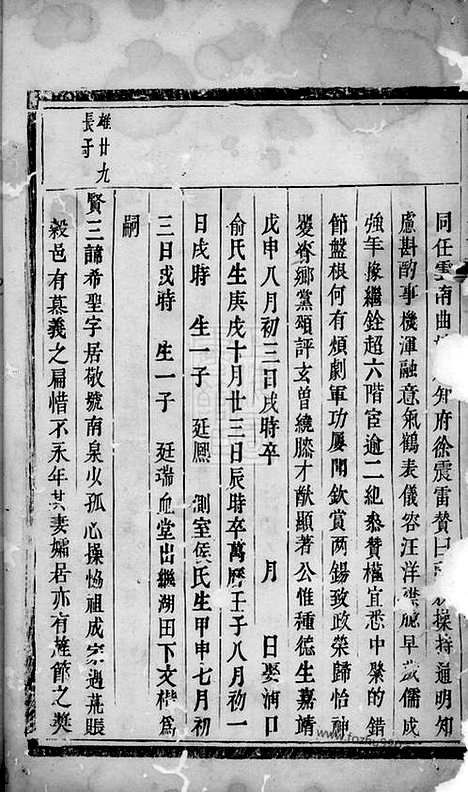 同任雲南曲 知府徐震雷贊曰 操持通明知
慮斟酌事機渾融意氣鶴表儀容汪洋襟 早歲儒成
強年掾繼銓超六階宦逾二紀叅贊權宜悉中肇的錯
節盤根何有煩劇軍功屢聞欽賞两錫致政榮歸怡神
鄉黨頌評玄曽繞膝才猷顯著公惟種德生嘉靖
戊申八月初三日戌時卒 月 日娶浦口
俞氏生庚戌十月廿三日辰時卒萬曆壬子八月初一
日戌時 生一子 廷 測室侯氏生甲申七月初
三日戌時 生一子 廷瑞血堂出繼湖田下文楷為
嗣
雄廿九
長子
賢三諱希聖字居敬號南泉少孤心操 祖成家遇荒賬
穀邑有慕義之扁惜不永年其妻孀居亦有旌節之獎
www.fozhu920.com